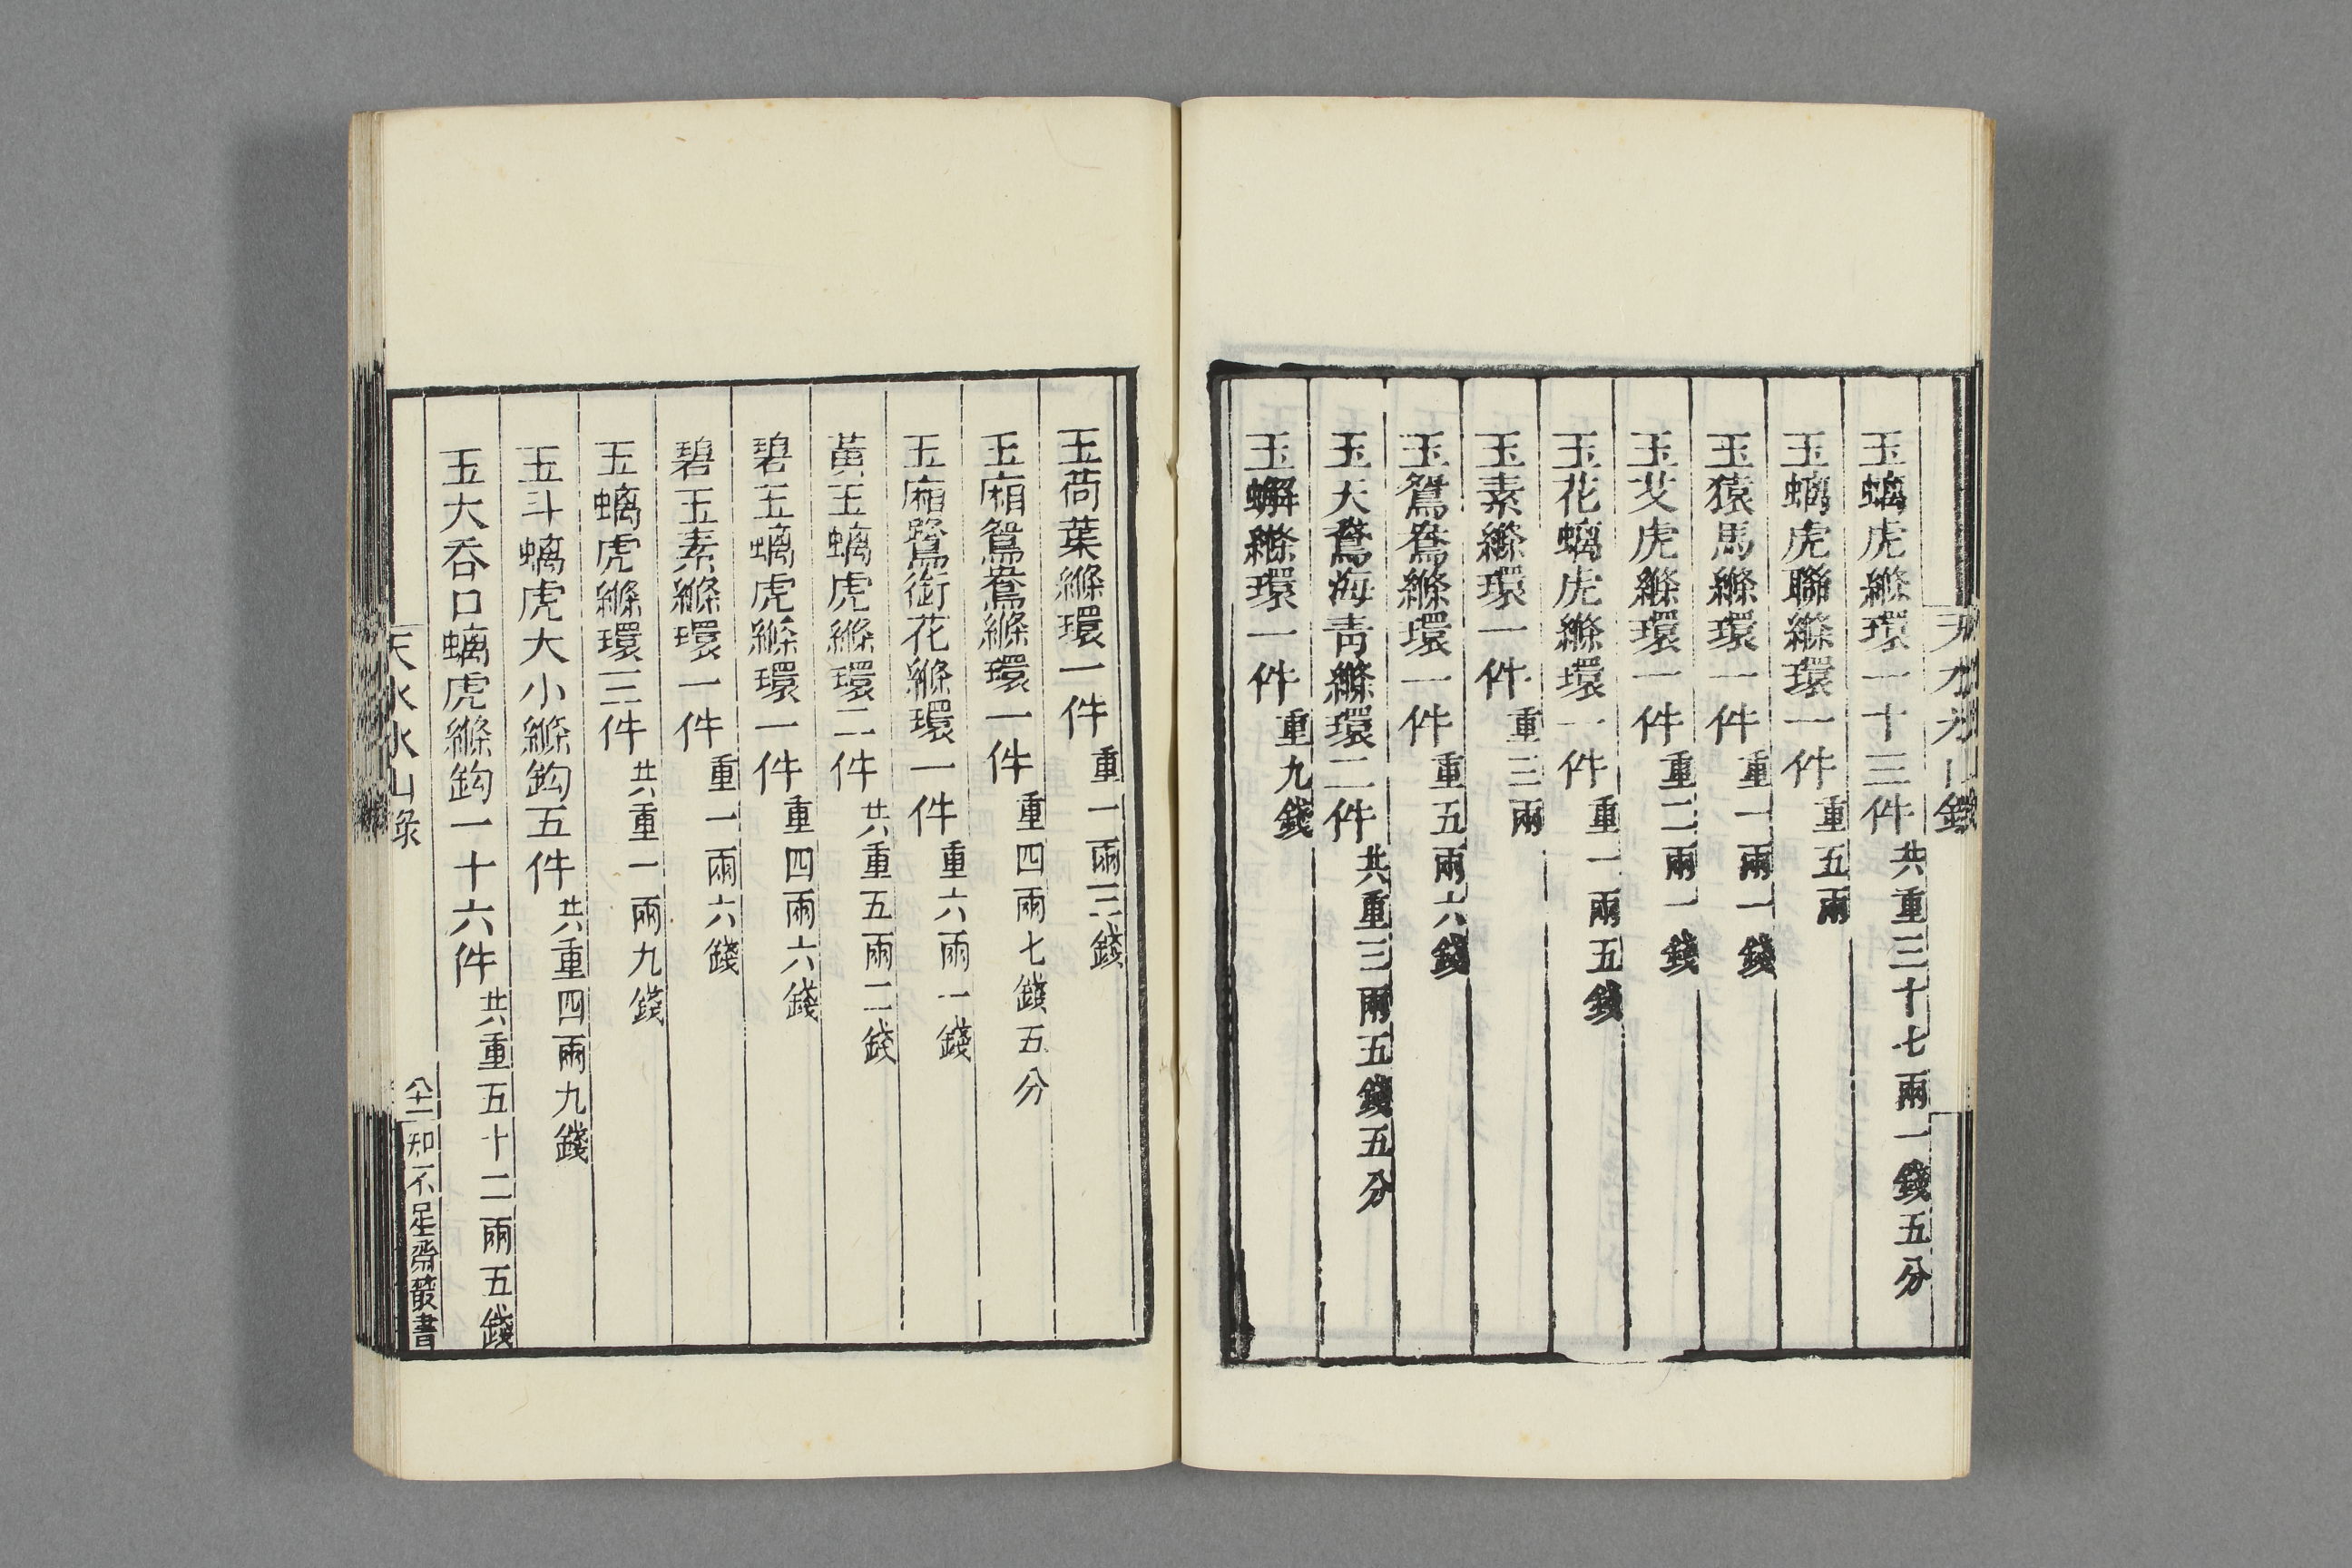 天水冰山錄
玉螭虎縧環一十三件共重三十七兩一錢五分
玉螭虎聯縧環一件重五兩
玉猿馬縧環一件重一兩一錢
玉艾虎縧環一件重二兩一錢
玉花螭虎縧環一件重一兩五錢
玉素縧環一件重三兩
玉鴛鴦縧環一件重五兩六錢
玉天鵞海青縧環二件共重三兩五錢五分
玉蠏縧環一件重九錢
玉荷葉縧環一件重一兩三錢
玉廂鴛鴦縧環一件重四兩七錢五分
玉廂鷺銜花縧環一件重六兩一錢
黃玉螭虎縧環二件共重五兩二錢
碧玉螭虎縧環一件重四兩六錢
碧玉素縧環一件重一兩六錢
玉螭虎縧環三件共重一兩九錢
玉斗螭虎大小縧鈎五件共重四兩九錢
玉大吞口螭虎縧鈎一十六件共重五十二兩五錢
天水冰山錄
知不足齋叢書